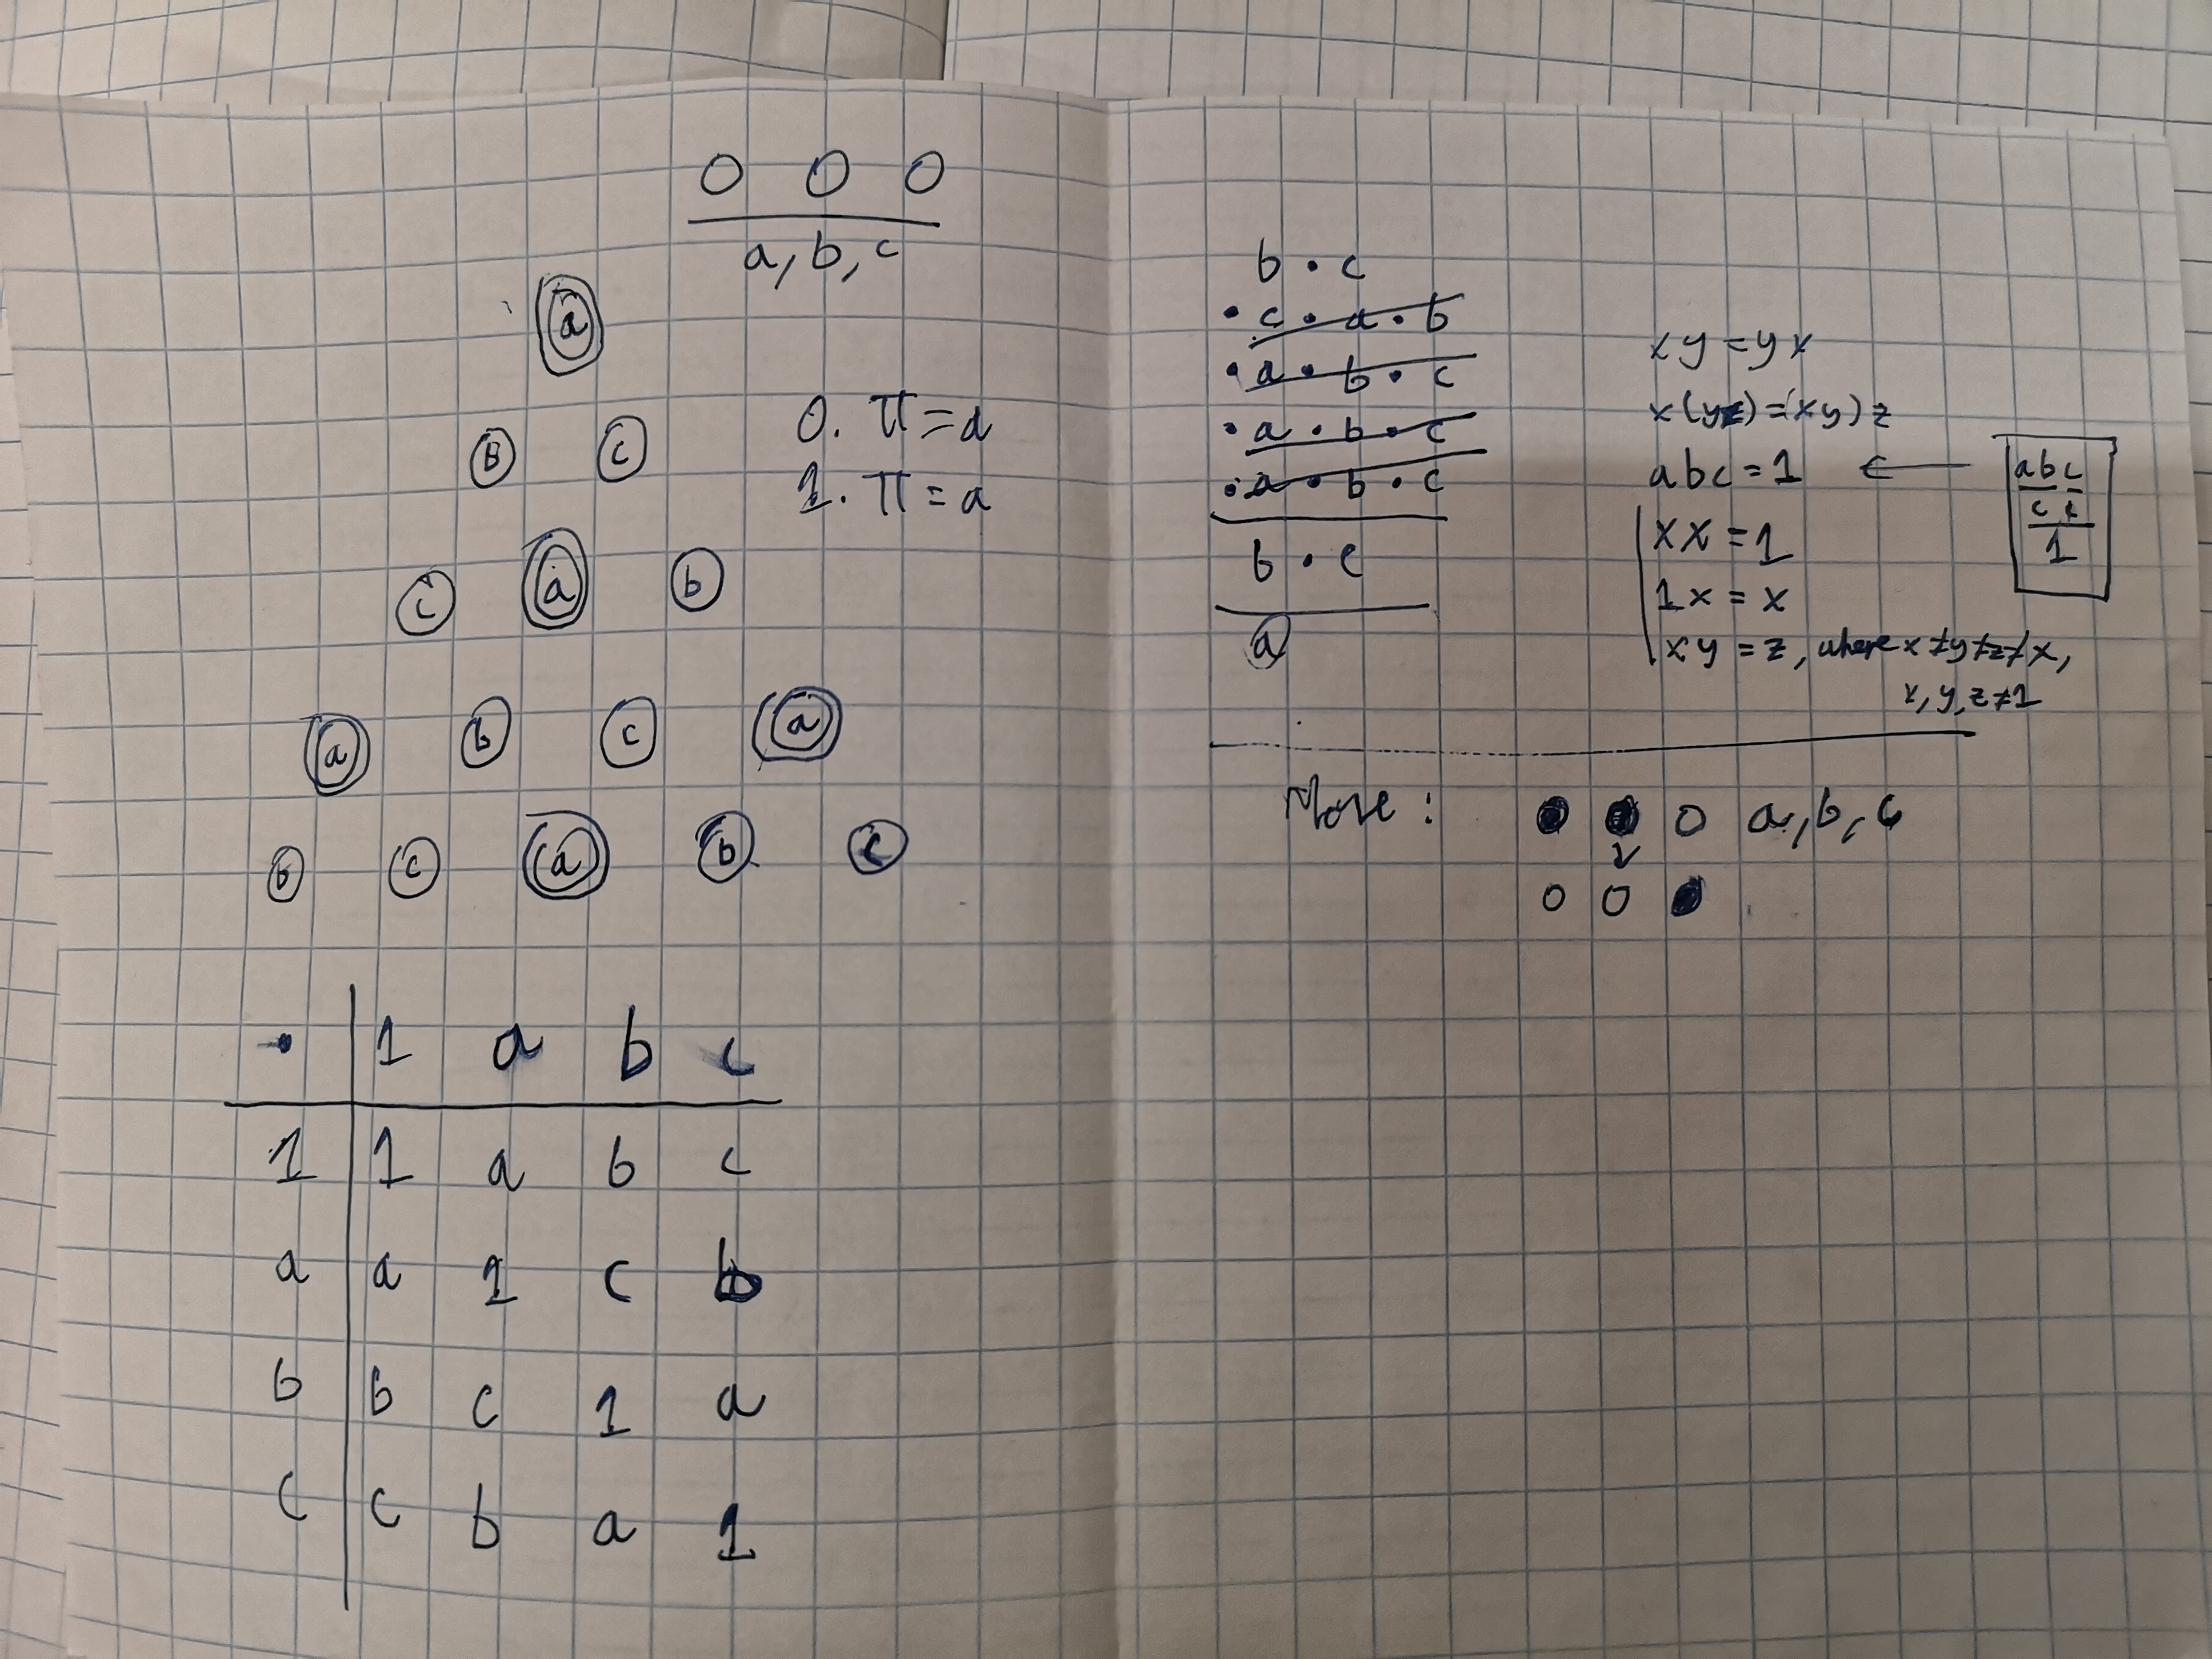 O O O
a, b, c
a
B c
0. π = a
1. π = a
c a b
a b c a
b c a b c
· 1 a b c
1 1 a b c
a a 1 c b
b b c 1 a
c c b a 1
b · c
· c · a · b
· a · b · c
· a · b · c
· a · b · c
b · c
a
xy = yx
x(yz) = (xy)z
abc = 1 ←
xx = 1
1x = x
xy = z, where x≠y≠z≠x,
x, y, z ≠ 1
abc
c c
1
More: ● ● O a, b, c
O O ●